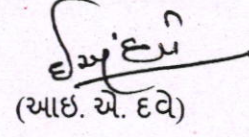 (આઇ. એ. દવે)